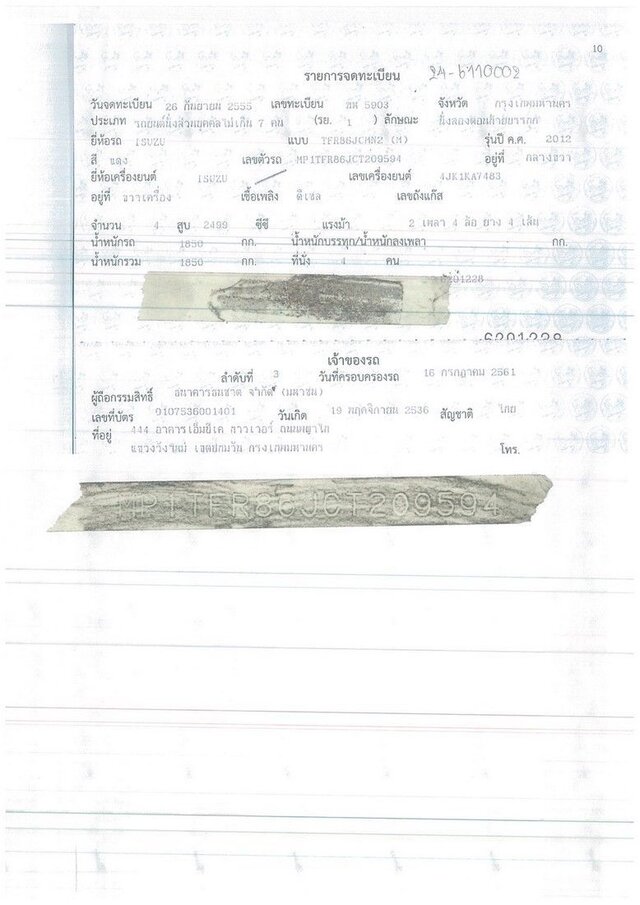 10
รายการจดทะเบียน 24-6110002
วันจดทะเบียน 26 กันยายน 2555 เลขทะเบียน 5903 จังหวัด กรุงเทพมหานคร
ประเภท รถยนต์นั่งส่วนบุคคลไม่เกิน 7 คน (รย. 1 ) ลักษณะ นั่งสองตอนท้ายบรรทุก
ยี่ห้อรถ ISUZU แบบ TFR86JCMN2 (M) รุ่นปี ค.ศ. 2012
สี แดง เลขตัวรถ MP1TFR86JCT209594 อยู่ที่ กลางขวา
ยี่ห้อเครื่องยนต์ ISUZU เลขเครื่องยนต์ 4JK1KA7483
อยู่ที่ ขวาเครื่อง เชื้อเพลิง ดีเซล เลขถังแก๊ส
จำนวน 4 สูบ 2499 ซีซี แรงม้า 2 เพลา 4 ล้อ ยาง 4 เส้น
น้ำหนักรถ 1850 กก. น้ำหนักบรรทุก/น้ำหนักลงเพลา กก.
น้ำหนักรวม 1850 กก. ที่นั่ง 4 คน
6201228
เจ้าของรถ
ลำดับที่ 3 วันที่ครอบครองรถ 16 กรกฎาคม 2561
ผู้ถือกรรมสิทธิ์ ธนาคารธนชาต จำกัด (มหาชน)
เลขที่บัตร 0107536001401 วันเกิด 19 พฤศจิกายน 2536 สัญชาติ ไทย
ที่อยู่ 444 อาคารเอ็มบีเค ทาวเวอร์ ถนนพญาไท
แขวงวังใหม่ เขตปทุมวัน กรุงเทพมหานคร โทร.
MP1TFR86JCT209594